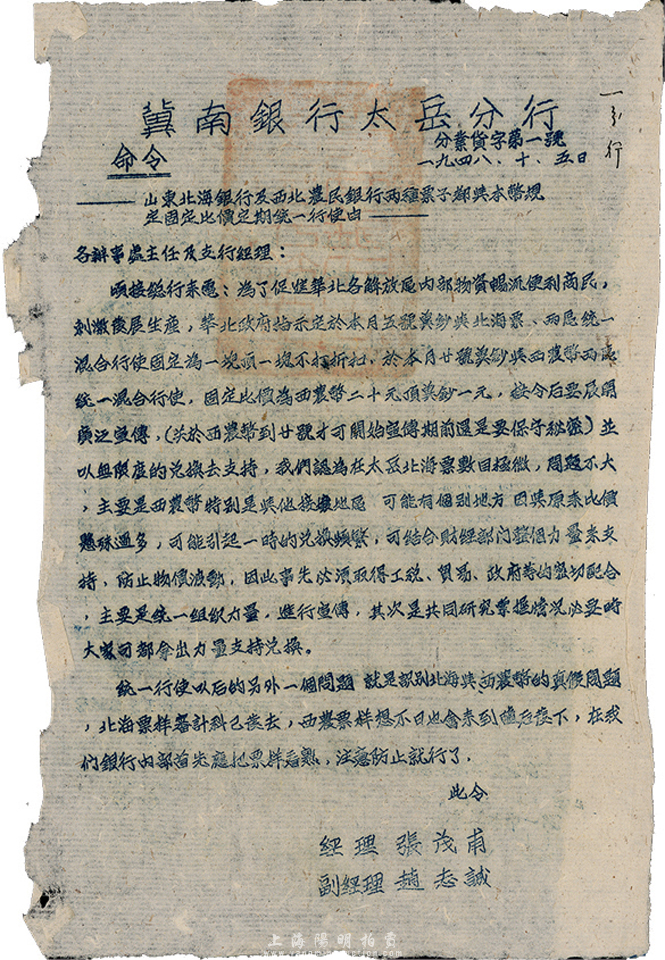 冀南銀行太岳分行
分業貨字第一號
命令
一九四八、十、五日
一分行
山東北海銀行及西北農民銀行兩種票子都與本幣規
定固定比價定期統一行使由
各辦事處主任及支行經理：
頃接總行來電：為了促進華北各解放區內部物資暢流便利商民，
刺激發展生產，華北政府指示定於本月五號冀鈔與北海票、兩區統一
混合行使固定為一塊頂一塊不打折扣，於本月廿號冀鈔與西農幣兩區
統一混合行使，固定比價為西農幣二十元頂冀鈔一元，接令后要展開
廣泛宣傳，（关於西農幣到廿號才可開始宣傳期前還是要保守秘密）並
以無限度的兌換去支持，我們認為在太岳北海票數目極微，問題不大
，主要是西農幣特別是與他接壤地區 可能有個別地方 因與原來比價
懸殊過多，可能引起一時的兌換頻繁，可結合財經部门整個力量來支
持，防止物價波動，因此事先必須取得工稅、貿易、政府等的密切配合
，主要是統一組織力量，進行宣傳，其次是共同研究票換情况必要時
大家可都拿出力量支持兌換。
統一行使以后的另外一個問題 就是認别北海與、西農幣的真假問題
，北海票样審計科已發去，西農票样想不日也會來到隨后發下，在我
們銀行內部首先應把票样看熟，注意防止就行了。
此令
經理 張茂甫
副經理 趙志誠
上海陽明拍賣